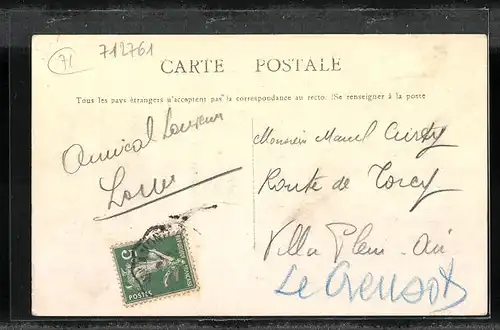 71
712761
CARTE POSTALE
Tous les pays étrangers n'acceptent pas la correspondance au recto. (Se renseigner à la poste
Amical
Monsieur Marcel
Route de Torcy
Villa Plein Air
Le Creusot
5
POSTES